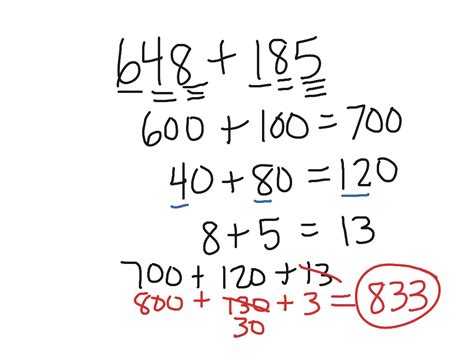 648 + 185
600 + 100 = 700
40 + 80 = 120
8 + 5 = 13
700 + 120 + 13
800 + 130 + 3 = 833
30